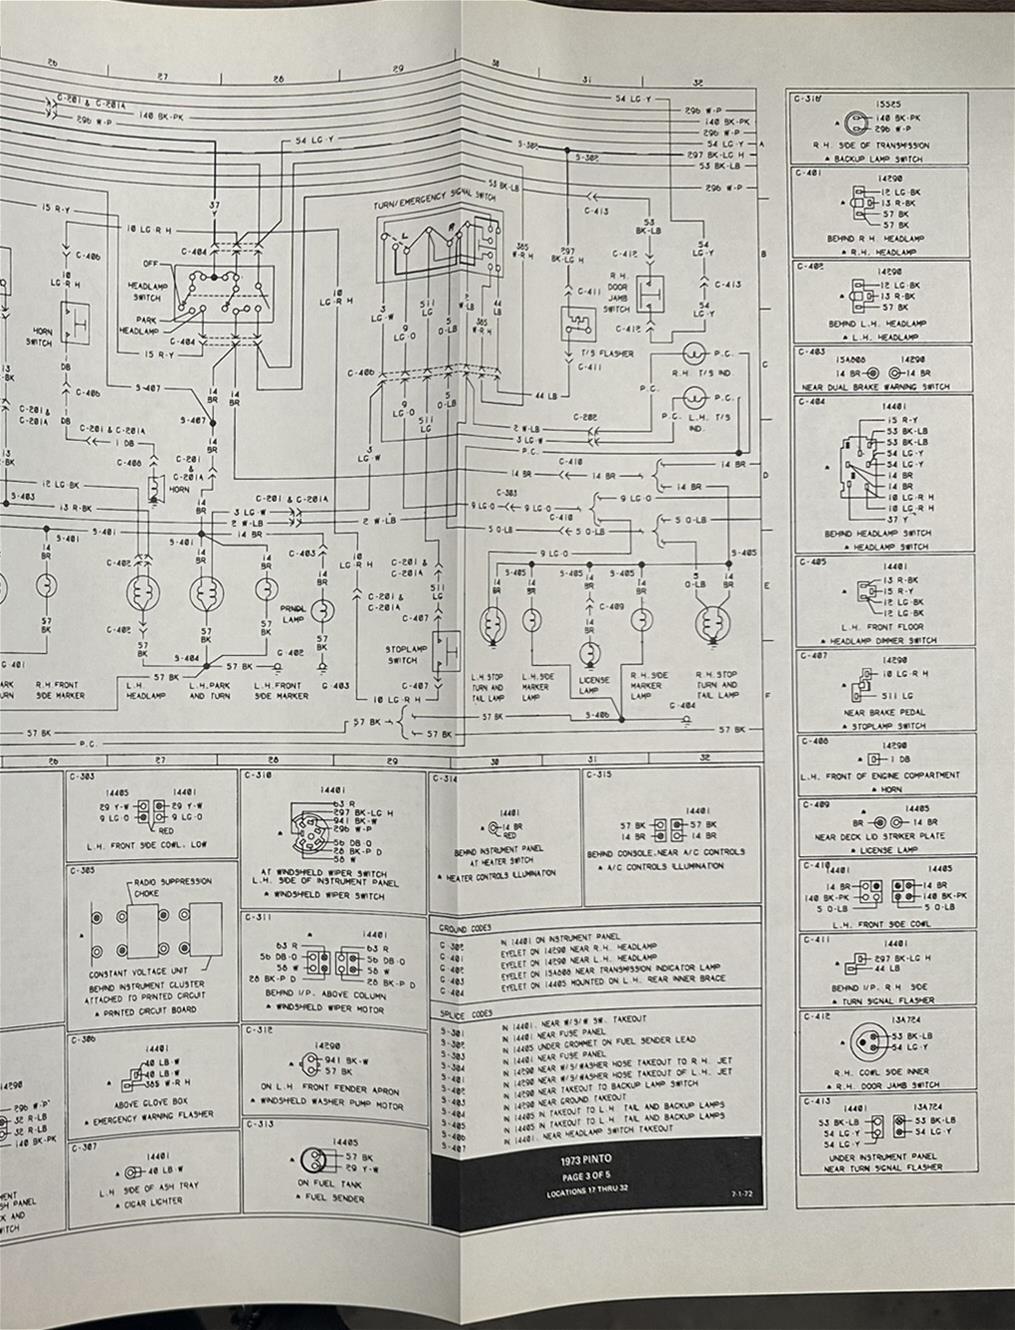 26 27 28 29 30 31 32
C-201 & C-201A
296 W-P
140 BK-PK
54 LG-Y
54 LG-Y
296 W-P
140 BK-PK
296 W-P
54 LG-Y
297 BK-LG H
53 BK-LB
296 W-P
A
B
C
D
E
F
S-302
53 BK-LB
TURN/EMERGENCY SIGNAL SWITCH
L
R
C-413
53
BK-LB
15 R-Y
37
Y
10 LG-R H
C-404
C-406
10
LG-R H
OFF
HEADLAMP
SWITCH
PARK
HEADLAMP
C-404
15 R-Y
10
LG-R H
HORN
SWITCH
DB
C-406
DB
385
W-R H
297
BK-LG H
C-412
54
LG-Y
R.H.
DOOR
JAMB
SWITCH
C-411
C-413
54
LG-Y
C-412
T/S FLASHER
C-411
P.C.
R.H. T/S IND.
P.C.
P.C.
P.C. L.H. T/S
IND.
3
LG-W
9
LG-O
511
LG
5
O-LB
2
W-LB
385
W-R H
44
LB
C-406
9
LG-O
511
LG
5
O-LB
44 LB
S-407
14
BR
14
BR
S-407
14
BR
C-201 &
C-201A
C-201 & C-201A
1 DB
C-408
HORN
C-201
&
C-201A
14
BR
3
LG-W
C-202
2 W-LB
3 LG-W
P.C.
14 BR
C-410
14 BR
14 BR
14 BR
12 LG-BK
S-403
13 R-BK
S-401
S-401
C-201 & C-201A
3 LG-W
2 W-LB
14 BR
2 W-LB
C-303
9 LG-O
9 LG-O
9 LG-O
C-410
5 O-LB
5 O-LB
5 O-LB
9 LG-O
S-405
S-405
S-405
S-405
C-402
C-403
PRNDL
LAMP
10
LG-R H
C-201 &
C-201A
C-201 &
C-201A
511
LG
C-407
STOPLAMP
SWITCH
C-407
10 LG-R H
C-409
5
O-LB
14
BR
57
BK
C-402
S-404
57 BK
57 BK
G-402
G-403
G-401
R.H. FRONT
SIDE MARKER
L.H.
HEADLAMP
L.H. PARK
AND TURN
L.H. FRONT
SIDE MARKER
L.H. STOP
TURN AND
TAIL LAMP
L.H. SIDE
MARKER
LAMP
LICENSE
LAMP
R.H. SIDE
MARKER
LAMP
R.H. STOP
TURN AND
TAIL LAMP
S-406
G-404
57 BK
57 BK
57 BK
57 BK
57 BK
P.C.
26 27 28 29 30 31 32
C-303
14405 14401
29 Y-W 29 Y-W
9 LG-O 9 LG-O
RED
L.H. FRONT SIDE COWL, LOW
C-305
RADIO SUPPRESSION
CHOKE
CONSTANT VOLTAGE UNIT
BEHIND INSTRUMENT CLUSTER
ATTACHED TO PRINTED CIRCUIT
* PRINTED CIRCUIT BOARD
C-306
14401
40 LB-W
40 LB-W
385 W-R H
ABOVE GLOVE BOX
* EMERGENCY WARNING FLASHER
C-307
14401
40 LB-W
L.H. SIDE OF ASH TRAY
* CIGAR LIGHTER
C-310
14401
63 R
297 BK-LG H
941 BK-W
296 W-P
56 DB-O
28 BK-P D
58 W
AT WINDSHIELD WIPER SWITCH
L.H. SIDE OF INSTRUMENT PANEL
* WINDSHIELD WIPER SWITCH
C-311
14401
63 R 63 R
56 DB-O 56 DB-O
58 W 58 W
28 BK-P D 28 BK-P D
BEHIND I/P, ABOVE COLUMN
* WINDSHIELD WIPER MOTOR
C-312
14290
941 BK-W
57 BK
ON L.H FRONT FENDER APRON
* WINDSHIELD WASHER PUMP MOTOR
C-313
14405
57 BK
29 Y-W
ON FUEL TANK
* FUEL SENDER
C-314
14401
14 BR
RED
BEHIND INSTRUMENT PANEL
AT HEATER SWITCH
* HEATER CONTROLS ILLUMINATION
C-315
14401
57 BK 57 BK
14 BR 14 BR
BEHIND CONSOLE, NEAR A/C CONTROLS
* A/C CONTROLS ILLUMINATION
GROUND CODES
G 302 IN 14401 ON INSTRUMENT PANEL
G 401 EYELET ON 14290 NEAR R.H. HEADLAMP
G 402 EYELET ON 14290 NEAR L.H. HEADLAMP
G 403 EYELET ON 15A808 NEAR TRANSMISSION INDICATOR LAMP
G 404 EYELET ON 14405 MOUNTED ON L.H. REAR INNER BRACE
SPLICE CODES
S-301 IN 14401, NEAR W/S/W SW. TAKEOUT
S-302 IN 14401 NEAR FUSE PANEL
S-303 IN 14405 UNDER GROMMET ON FUEL SENDER LEAD
S-304 IN 14401 NEAR FUSE PANEL
S-401 IN 14290 NEAR W/S/WASHER HOSE TAKEOUT TO R.H. JET
S-402 IN 14290 NEAR W/S/WASHER HOSE TAKEOUT OF L.H. JET
S-403 IN 14290 NEAR TAKEOUT TO BACKUP LAMP SWITCH
S-404 IN 14290 NEAR GROUND TAKEOUT
S-405 IN 14405 IN TAKEOUT TO L.H TAIL AND BACKUP LAMPS
S-406 IN 14405 IN TAKEOUT TO L.H TAIL AND BACKUP LAMPS
S-407 IN 14401, NEAR HEADLAMP SWITCH TAKEOUT
1973 PINTO
PAGE 3 OF 5
LOCATIONS 17 THRU 32
7-1-72
C-316
15525
140 BK-PK
296 W-P
R.H. SIDE OF TRANSMISSION
* BACKUP LAMP SWITCH
C-401
14290
12 LG-BK
13 R-BK
57 BK
57 BK
BEHIND R H. HEADLAMP
* R.H. HEADLAMP
C-402
14290
12 LG-BK
13 R-BK
57 BK
BEHIND L.H. HEADLAMP
* L.H. HEADLAMP
C-403
15A808 14290
14 BR 14 BR
NEAR DUAL BRAKE WARNING SWITCH
C-404
14401
15 R-Y
53 BK-LB
53 BK-LB
54 LG-Y
54 LG-Y
14 BR
14 BR
10 LG-R H
10 LG-R H
37 Y
BEHIND HEADLAMP SWITCH
* HEADLAMP SWITCH
C-405
14401
13 R-BK
15 R-Y
12 LG-BK
12 LG-BK
L.H. FRONT FLOOR
* HEADLAMP DIMMER SWITCH
C-407
14290
10 LG-R H
511 LG
NEAR BRAKE PEDAL
* STOPLAMP SWITCH
C-408
14290
1 DB
L.H. FRONT OF ENGINE COMPARTMENT
* HORN
C-409
14405
BR 14 BR
NEAR DECK LID STRIKER PLATE
* LICENSE LAMP
C-410
14401 14405
14 BR 14 BR
140 BK-PK 140 BK-PK
5 O-LB 5 O-LB
L.H. FRONT SIDE COWL
C-411
14401
297 BK-LG H
44 LB
BEHIND I/P R.H SIDE
* TURN SIGNAL FLASHER
C-412
13A724
53 BK-LB
54 LG-Y
R.H. COWL SIDE INNER
* R.H. DOOR JAMB SWITCH
C-413
14401 13A724
53 BK-LB 53 BK-LB
54 LG-Y 54 LG-Y
54 LG-Y
UNDER INSTRUMENT PANEL
NEAR TURN SIGNAL FLASHER